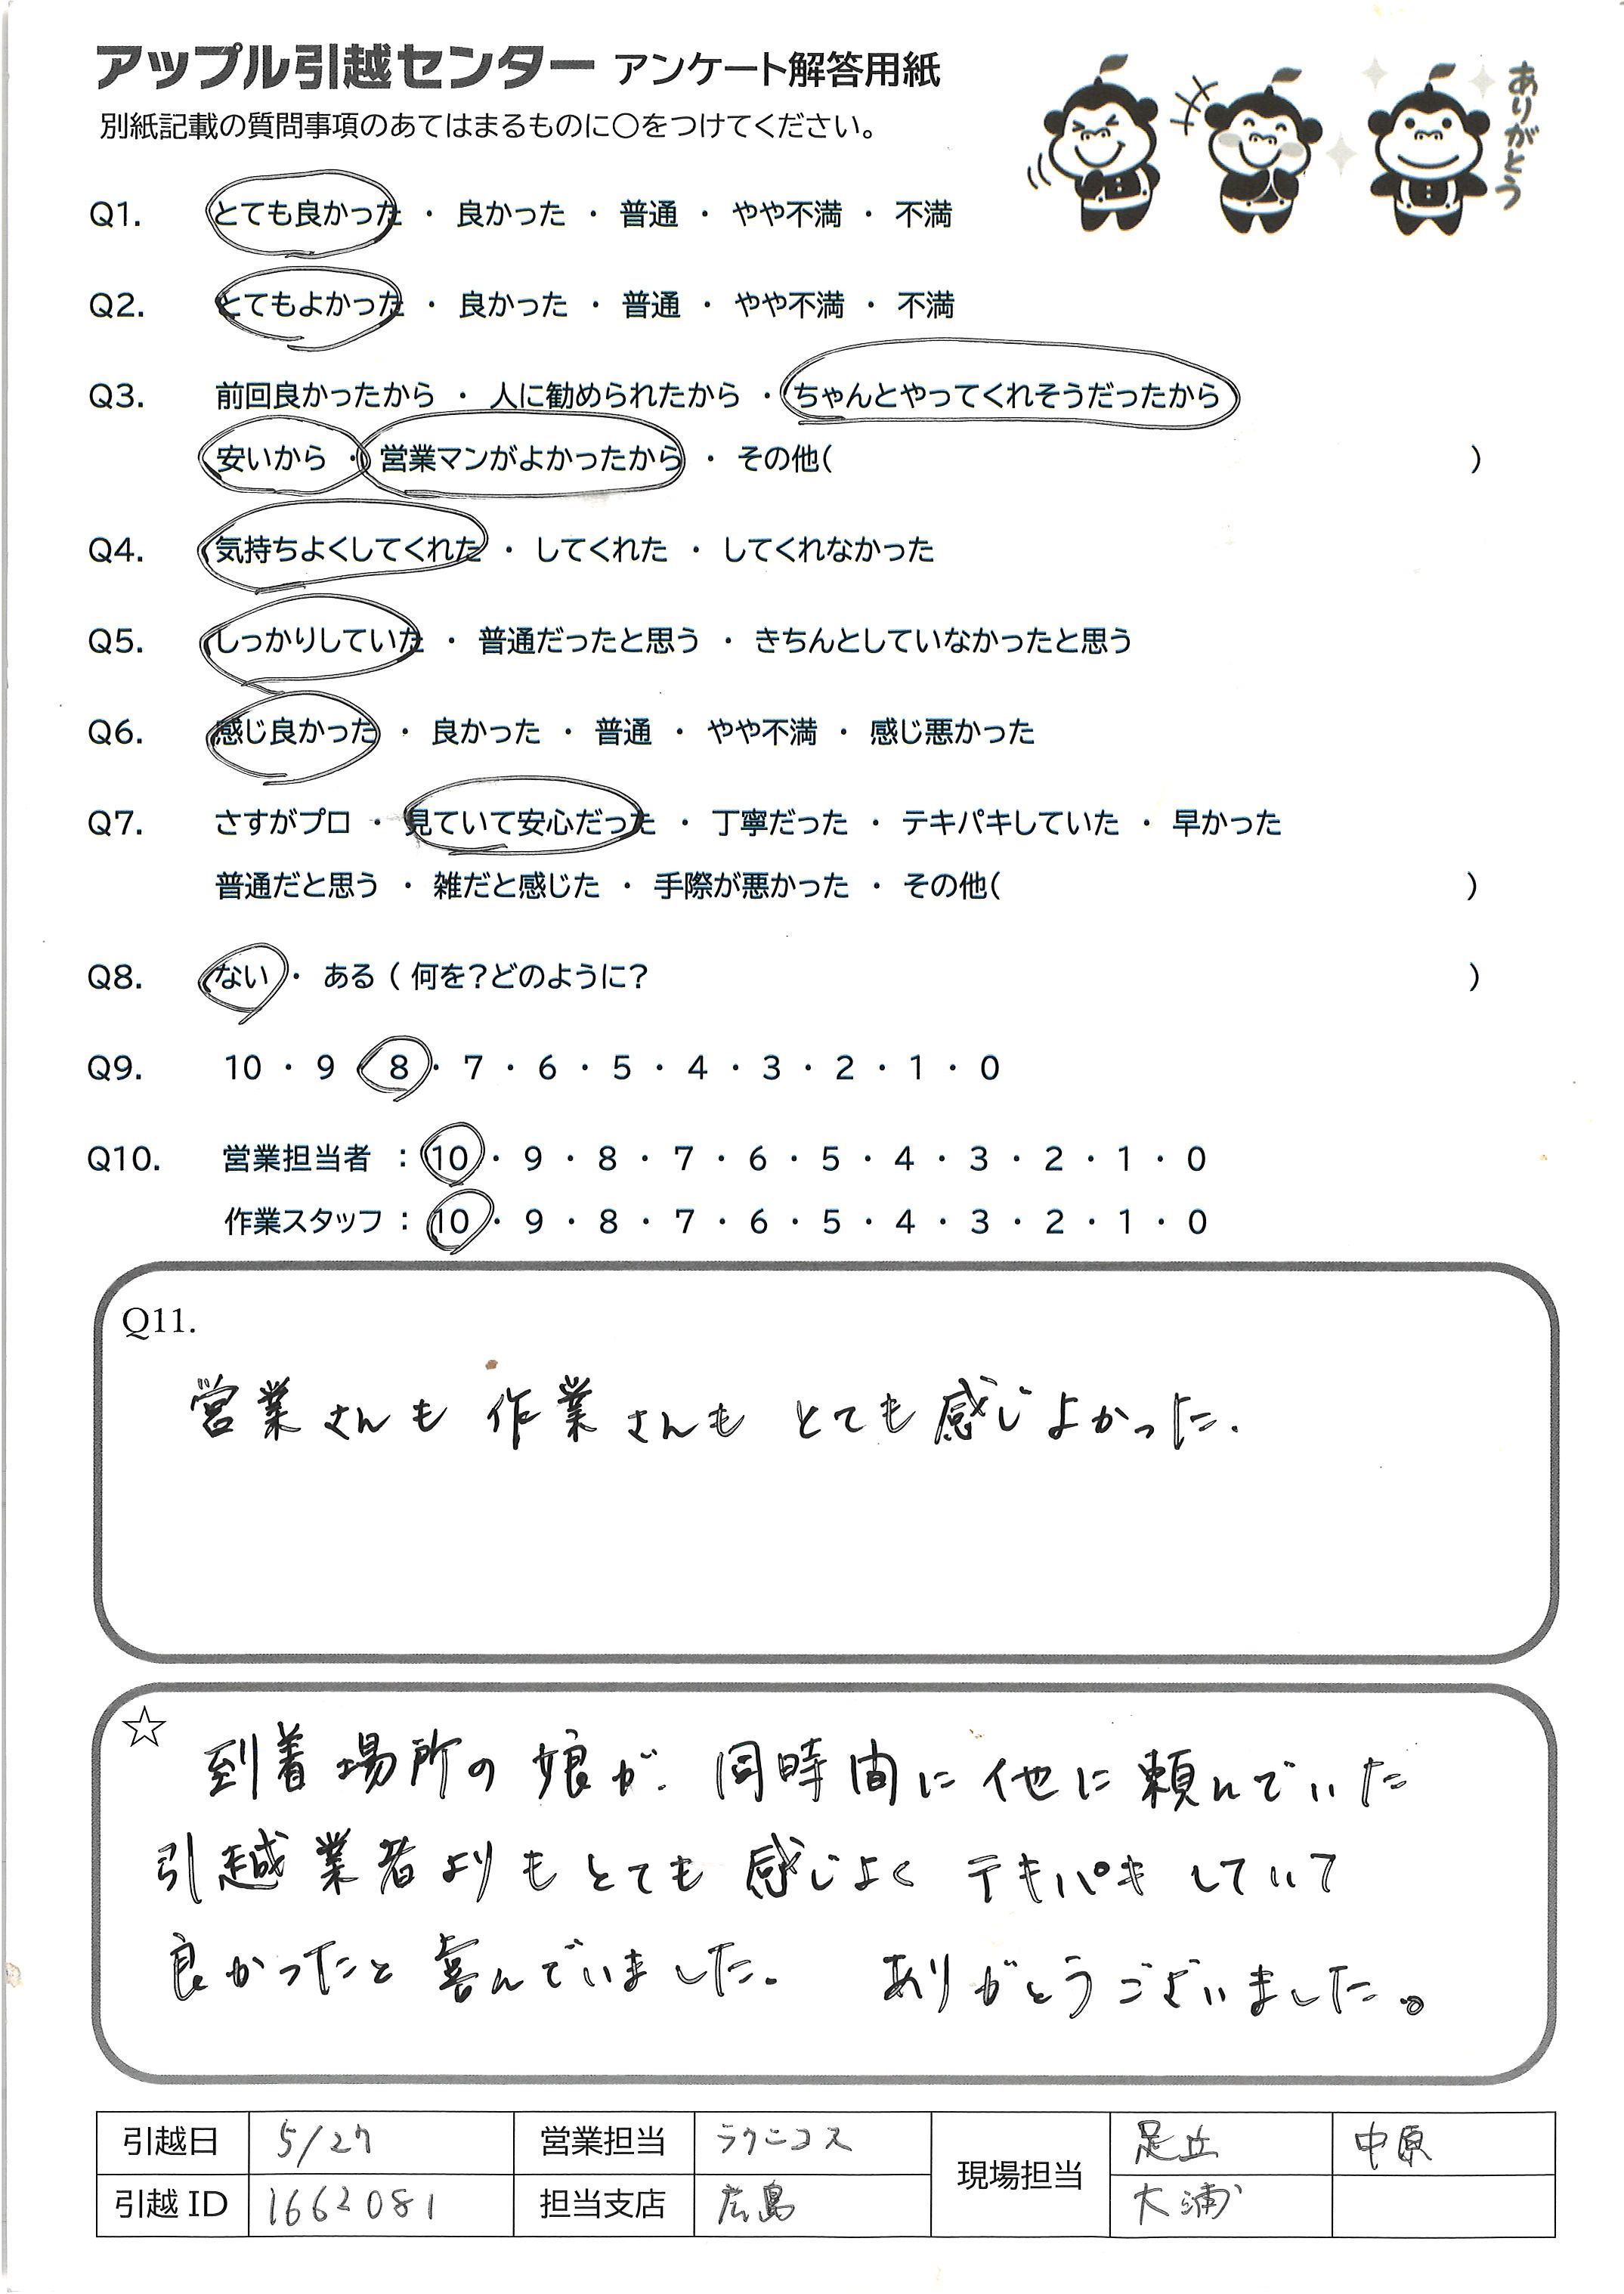 アップル引越センター アンケート解答用紙
ありがとう
別紙記載の質問事項のあてはまるものに○をつけてください。
Q1. とても良かった ・ 良かった ・ 普通 ・ やや不満 ・ 不満
Q2. とてもよかった ・ 良かった ・ 普通 ・ やや不満 ・ 不満
Q3. 前回良かったから ・ 人に勧められたから ・ ちゃんとやってくれそうだったから
安いから ・ 営業マンがよかったから ・ その他( )
Q4. 気持ちよくしてくれた ・ してくれた ・ してくれなかった
Q5. しっかりしていた ・ 普通だったと思う ・ きちんとしていなかったと思う
Q6. 感じ良かった ・ 良かった ・ 普通 ・ やや不満 ・ 感じ悪かった
Q7. さすがプロ ・ 見ていて安心だった ・ 丁寧だった ・ テキパキしていた ・ 早かった
普通だと思う ・ 雑だと感じた ・ 手際が悪かった ・ その他( )
Q8. ない ・ ある ( 何を?どのように? )
Q9. 10 ・ 9 8 ・ 7 ・ 6 ・ 5 ・ 4 ・ 3 ・ 2 ・ 1 ・ 0
Q10. 営業担当者 : 10 ・ 9 ・ 8 ・ 7 ・ 6 ・ 5 ・ 4 ・ 3 ・ 2 ・ 1 ・ 0
作業スタッフ : 10 ・ 9 ・ 8 ・ 7 ・ 6 ・ 5 ・ 4 ・ 3 ・ 2 ・ 1 ・ 0
Q11.
営業さんも 作業さんも とても感じよかった.
☆ 到着場所の娘が、同時間に他に頼んでいた
引越業者よりもとても感じよく テキパキしていて
良かったと喜んでいました。 ありがとうございました。
引越日 5/27 営業担当 ラクニコス 現場担当 足立 中原
引越 ID 1662081 担当支店 広島 大浦